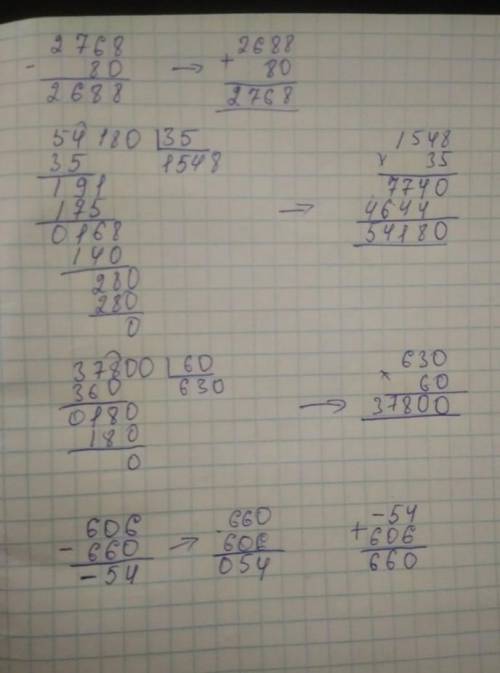 2768 2688
- 80 → + 80
2688 2768
54180 35 1548
35 1548 × 35
191 7740
175 → 4644
0168 54180
140
280
280
0
37800 60 630
360 630 × 60
0180 → 37800
180
0
606 660 -54
- 660 → - 606 + 606
-54 054 660